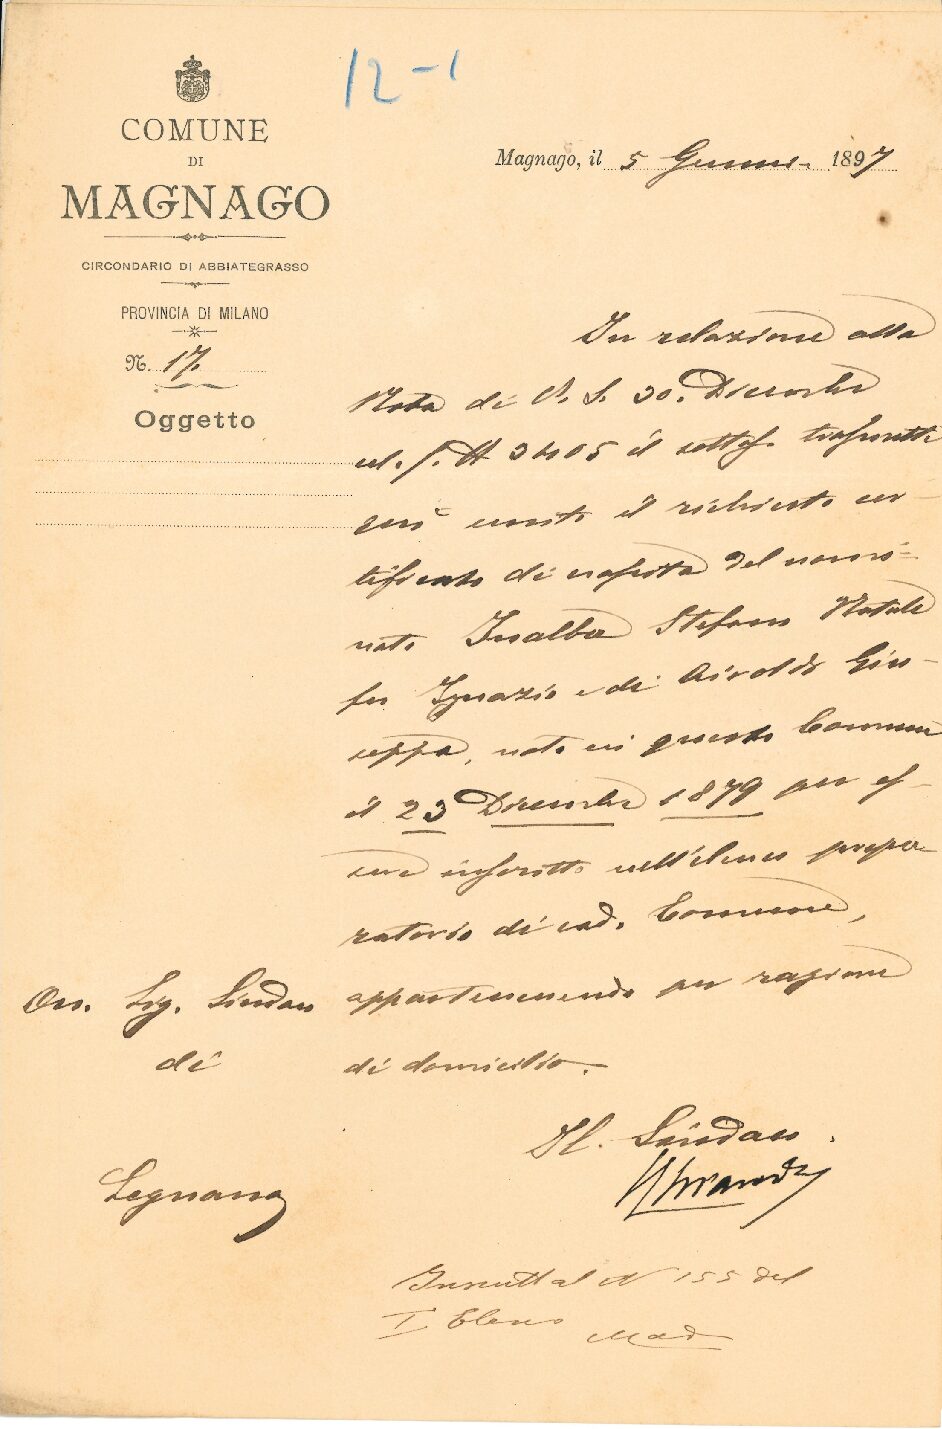 12-1
COMUNE
DI
MAGNAGO
CIRCONDARIO DI ABBIATEGRASSO
PROVINCIA DI MILANO
N. 17.
Oggetto
Magnago, il 5 Gennaio 1897
In relazione alla
Nota di V. S. 30. Dicembre
u.s. N 3405 il sottos. trasmette
qui unito il richiesto cer-
tificato di nascita del nomi-
nato Inalba Stefano Natale
fu Ignazio e di Airoldi Giu-
seppa, nato in questo Comune
il 23 Dicembre 1879 per es-
sere inscritto nell'elenco prepa-
ratorio di cod. Comune,
appartenendo per ragione
di domicilio.
On. Sig. Sindaco
di
Legnano
Il. Sindaco.
al N 155 del
I Elenco